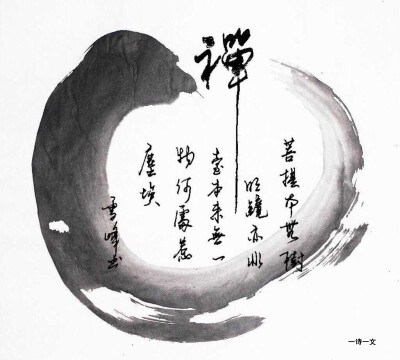 禪
菩提本無樹
明鏡亦非
臺本来無一
物何處惹
塵埃
雪峰书
一诗一文